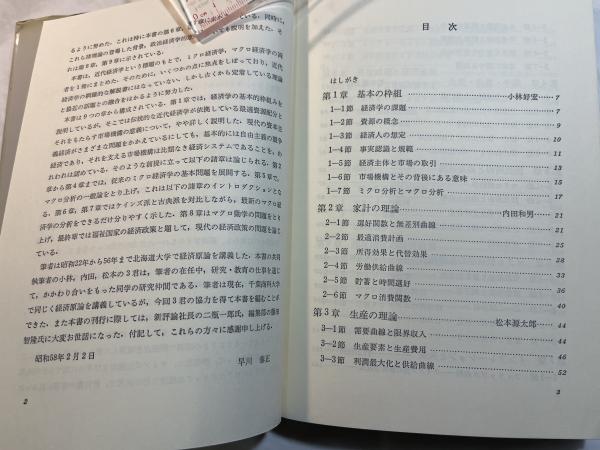 るように努めた。これは特に本書の第
これら諸理論の登場した背景、政治経済学的
は第8章、第9章に示されている。
本書は、近代経済学という標題のもとで、ミクロ経済学、マクロ経済学の両
者を1冊にまとめた。そのために、いくつかの点に焦点をしぼっており、近代
経済学の網羅的な解説書にはなっていない。しかし古くから定着している理論
と最近の話題との融合をはかるように努力した。
本書は9つの章から構成されている。第1章では、経済学の基本的枠組みを
説明しているが、そこでは伝統的な近代経済学が依拠している最適資源配分と
それをもたらす市場機構の意義について、やや詳しく説明した。現代の資本主
義経済がさまざまな問題をかかえているにしても、基本的には自由主義の競争
経済であり、それを支える市場機構は比類なき経済システムであることを、わ
れわれは認めている。そのような前提に立って以下の諸章は論じられる。第2
章から第4章までは、従来のミクロ経済学の基本問題を展開する。第5章で、
マクロ分析の一般論をとり上げ、これは以下の諸章のイントロダクションとな
る。第6章、第7章ではケインズ派と古典派を対比しながら、最新のマクロ経
済学の分析をできるだけ分りやすく示した。第8章はマクロ動学の問題をとり
上げ、最終章では福祉国家の経済政策と題して、現代の経済政策の問題を論じ
ている。
筆者は昭和22年から56年まで北海道大学で経済原論を講義した。本書の共同
執筆者の小林、内田、松本の3君は、筆者の在任中、研究・教育の仕事を通じ
て、かかわり合いをもった同学の研究仲間である。筆者は現在、千葉商科大学
で同じく経済原論を講義しているが、今回3君の協力を得て本書を編むことが
できた。また本書の刊行に際しては、新評論社長の二瓶一郎氏、編集部の藤本
智隆氏に大変お世話になった。付記して、これらの方々に感謝申し上げる。
昭和58年2月2日
早川 泰正
2
目次
はしがき
第1章 基本の枠組 小林好宏 7
1―1節 経済学の課題 7
1―2節 資源の概念 9
1―3節 経済人の想定 10
1―4節 事実認識と規範 11
1―5節 経済主体と市場の取引 13
1―6節 市場機構とその背後にある意味 15
1―7節 ミクロ分析とマクロ分析 17
第2章 家計の理論 内田和男 21
2―1節 選好関数と無差別曲線 21
2―2節 最適消費計画 25
2―3節 所得効果と代替効果 28
2―4節 労働供給曲線 33
2―5節 貯蓄と時間選好 36
2―6節 マクロ消費関数 40
第3章 生産の理論 松本源太郎 44
3―1節 需要曲線と限界収入 44
3―2節 生産要素と生産費用 46
3―3節 利潤最大化と供給曲線 52
3